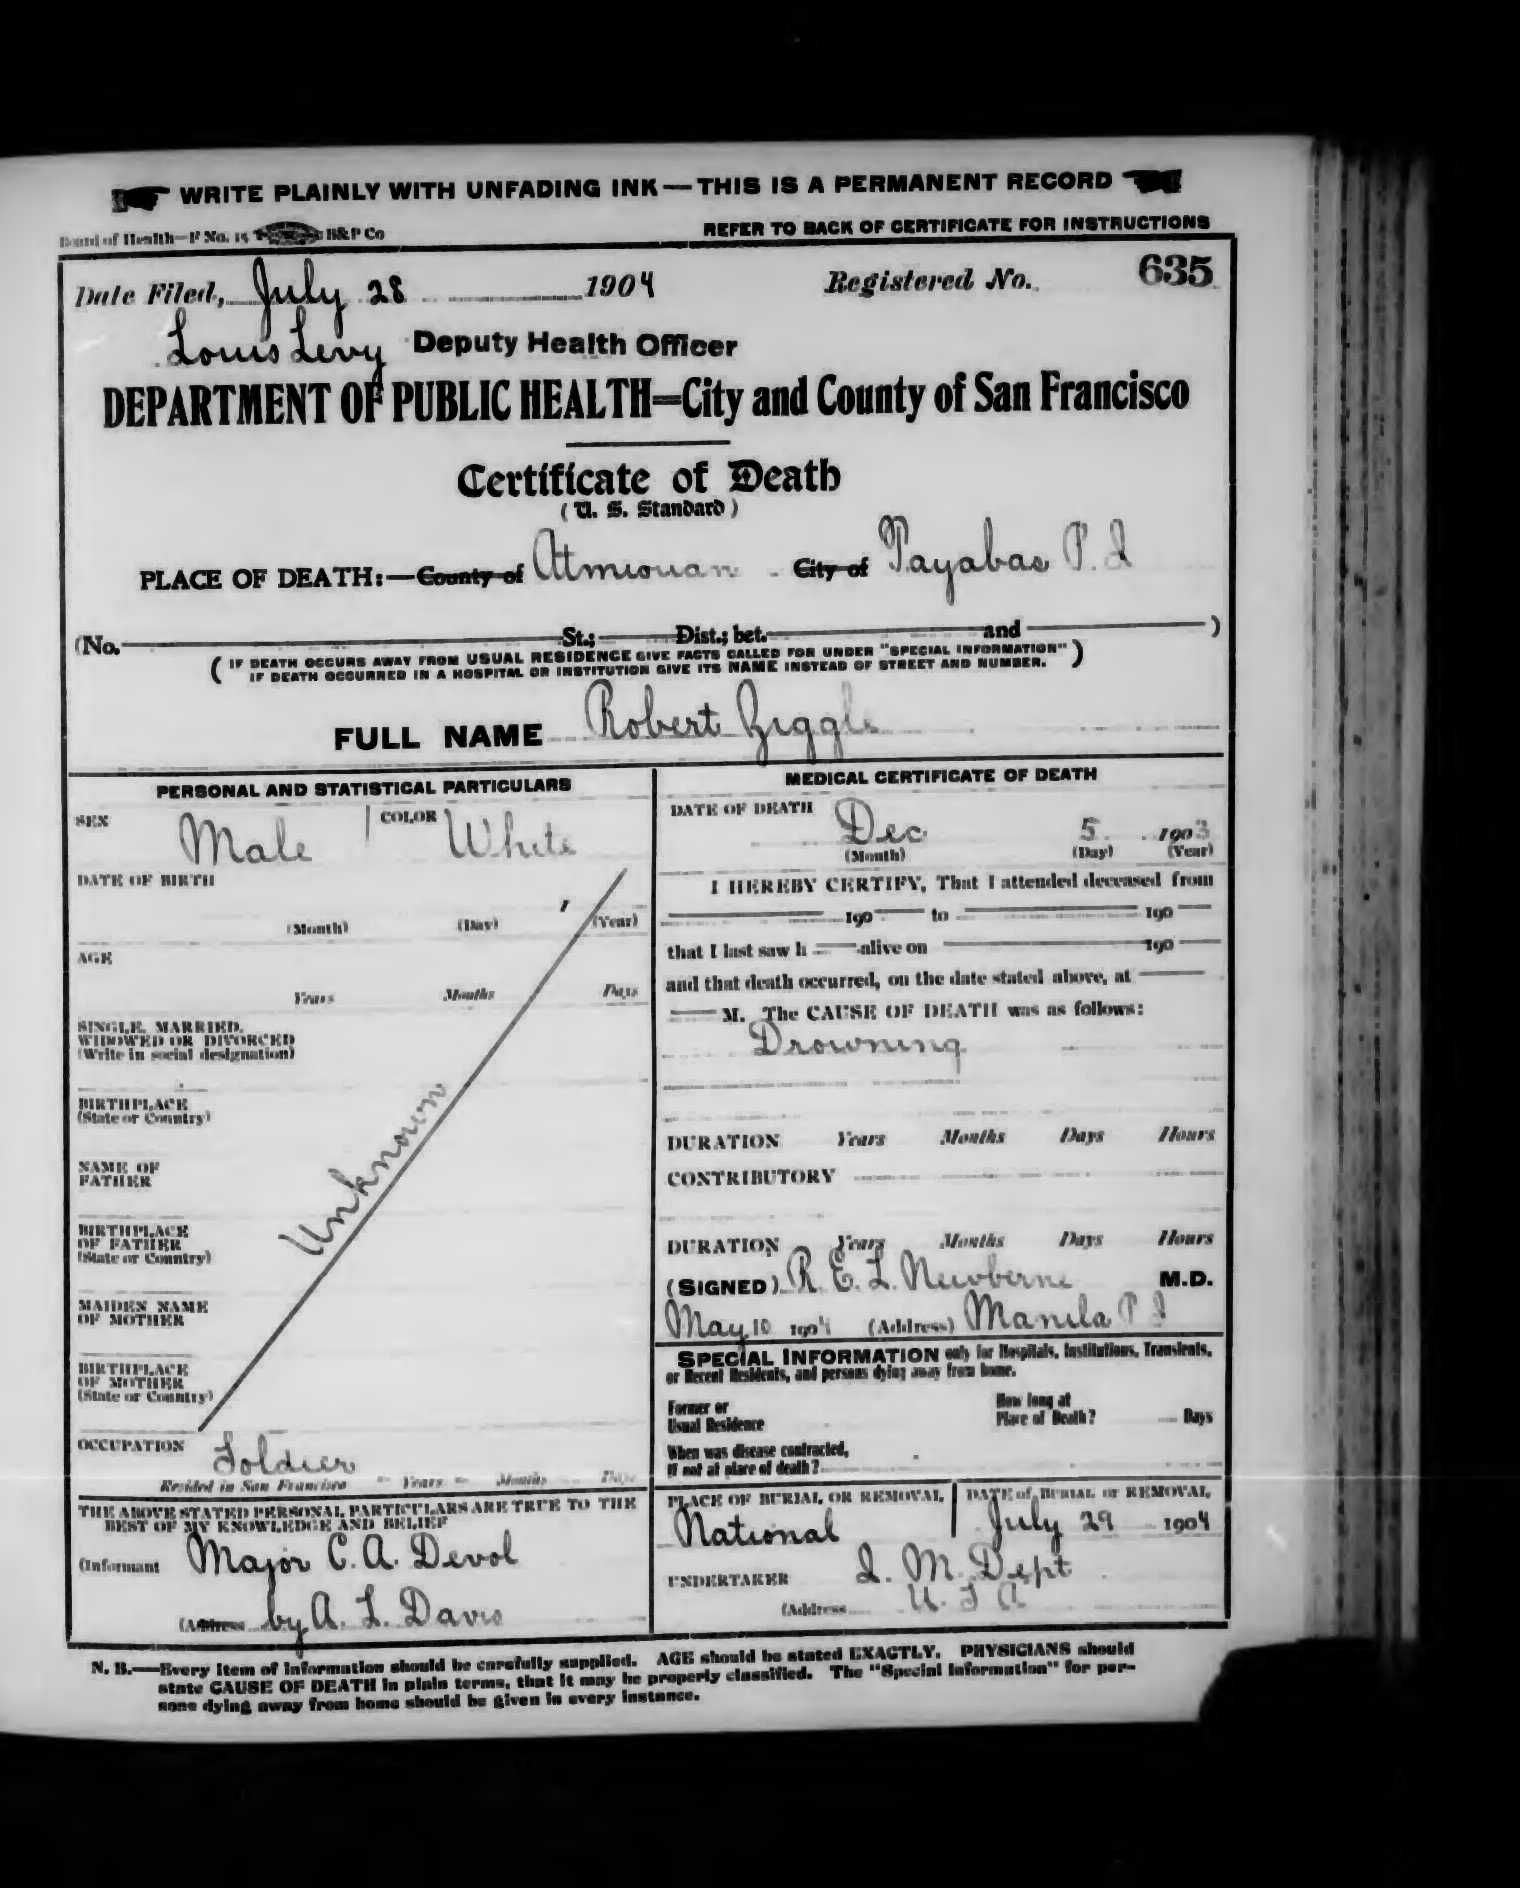 WRITE PLAINLY WITH UNFADING INK—THIS IS A PERMANENT RECORD
Board of Health—F No. 15 B&P Co
REFER TO BACK OF CERTIFICATE FOR INSTRUCTIONS
Date Filed, July 28 1904 Registered No. 635
Louis Levy Deputy Health Officer
DEPARTMENT OF PUBLIC HEALTH=City and County of San Francisco
Certificate of Death
(U. S. Standard)
PLACE OF DEATH:—County of Atmiouan City of Payabas P. I
(No. St.; Dist.; bet. and )
( IF DEATH OCCURS AWAY FROM USUAL RESIDENCE GIVE FACTS CALLED FOR UNDER "SPECIAL INFORMATION" )
IF DEATH OCCURRED IN A HOSPITAL OR INSTITUTION GIVE ITS NAME INSTEAD OF STREET AND NUMBER.
FULL NAME Robert Ziggle
PERSONAL AND STATISTICAL PARTICULARS
SEX Male COLOR White
DATE OF BIRTH
(Month) (Day) (Year)
AGE
Years Months Days
SINGLE, MARRIED,
WIDOWED OR DIVORCED
(Write in social designation)
BIRTHPLACE
(State or Country)
Unknown
NAME OF
FATHER
BIRTHPLACE
OF FATHER
(State or Country)
MAIDEN NAME
OF MOTHER
BIRTHPLACE
OF MOTHER
(State or Country)
OCCUPATION Soldier
Resided in San Francisco Years Months Days
THE ABOVE STATED PERSONAL PARTICULARS ARE TRUE TO THE
BEST OF MY KNOWLEDGE AND BELIEF
(Informant Major C. A. Devol
(Address by A. L. Davis
MEDICAL CERTIFICATE OF DEATH
DATE OF DEATH
Dec 5 1903
(Month) (Day) (Year)
I HEREBY CERTIFY, That I attended deceased from
190 to 190
that I last saw h alive on 190
and that death occurred, on the date stated above, at
M. The CAUSE OF DEATH was as follows:
Drowning
DURATION Years Months Days Hours
CONTRIBUTORY
DURATION Years Months Days Hours
(SIGNED) R. E. L. Newberne M.D.
May 10 1904 (Address) Manila P I
SPECIAL INFORMATION only for Hospitals, Institutions, Transients,
or Recent Residents, and persons dying away from home.
Former or
Usual Residence
How long at
Place of Death? Days
When was disease contracted,
If not at place of death?
PLACE OF BURIAL OR REMOVAL
National
DATE of BURIAL or REMOVAL
July 29 1904
UNDERTAKER Q. M. Dept
(Address U. S A
N. B.—Every item of information should be carefully supplied. AGE should be stated EXACTLY. PHYSICIANS should
state CAUSE OF DEATH in plain terms, that it may be properly classified. The "Special Information" for per-
sons dying away from home should be given in every instance.